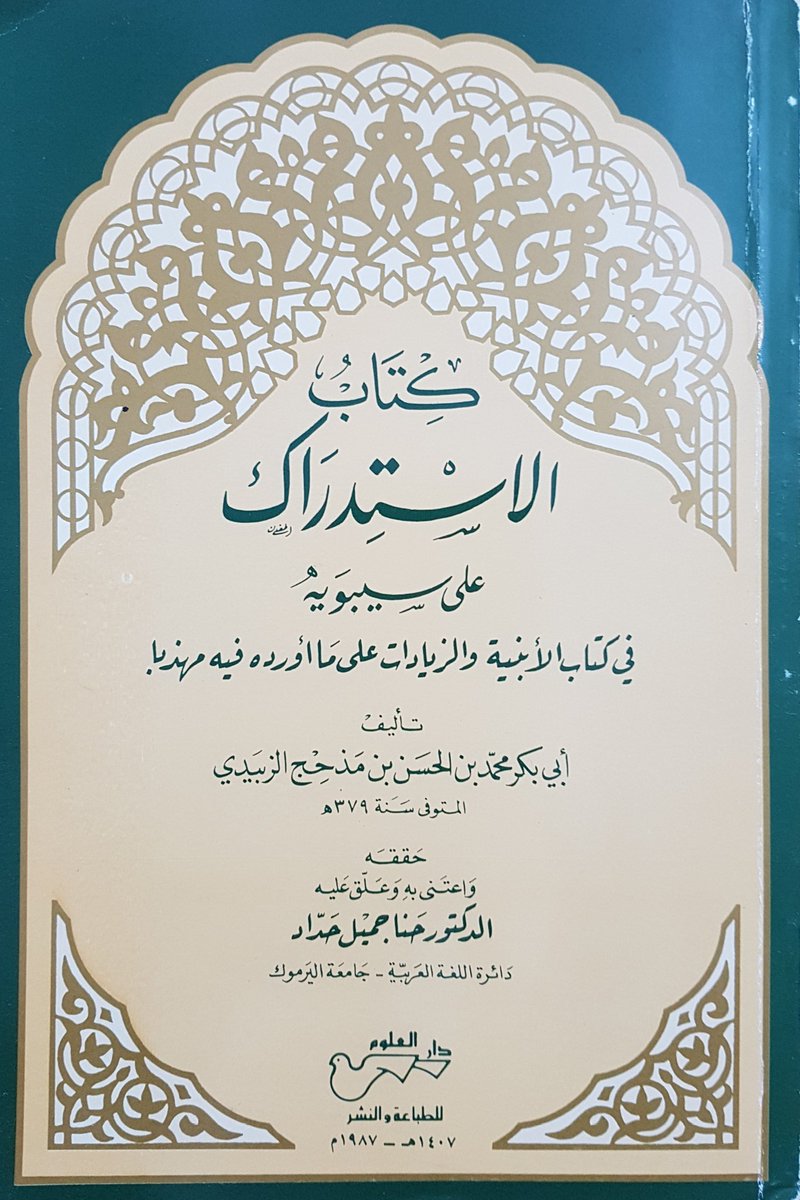 كِتَابُ
الاسْتِدرَاك
على سيبَوَيهُ
في كتاب الأبنية والزيادات على مَا أورده فيه مهذبا.
تأليف
أبي بكر محمّد بن الحسَن بن مَذحِج الزبَيدي
المتوفى سَنَة ٣٧٩ ھ
حَققه
وَاعتَنى بهِ وَعَلّق عَليه
الدكتور حَنا جميْل حَدّاد
دَائرة اللغة العَربيّة - جَامعَة اليَرموك
دار العلوم
للطباعة والنشر
١٤٠٧هـ - ١٩٨٧م